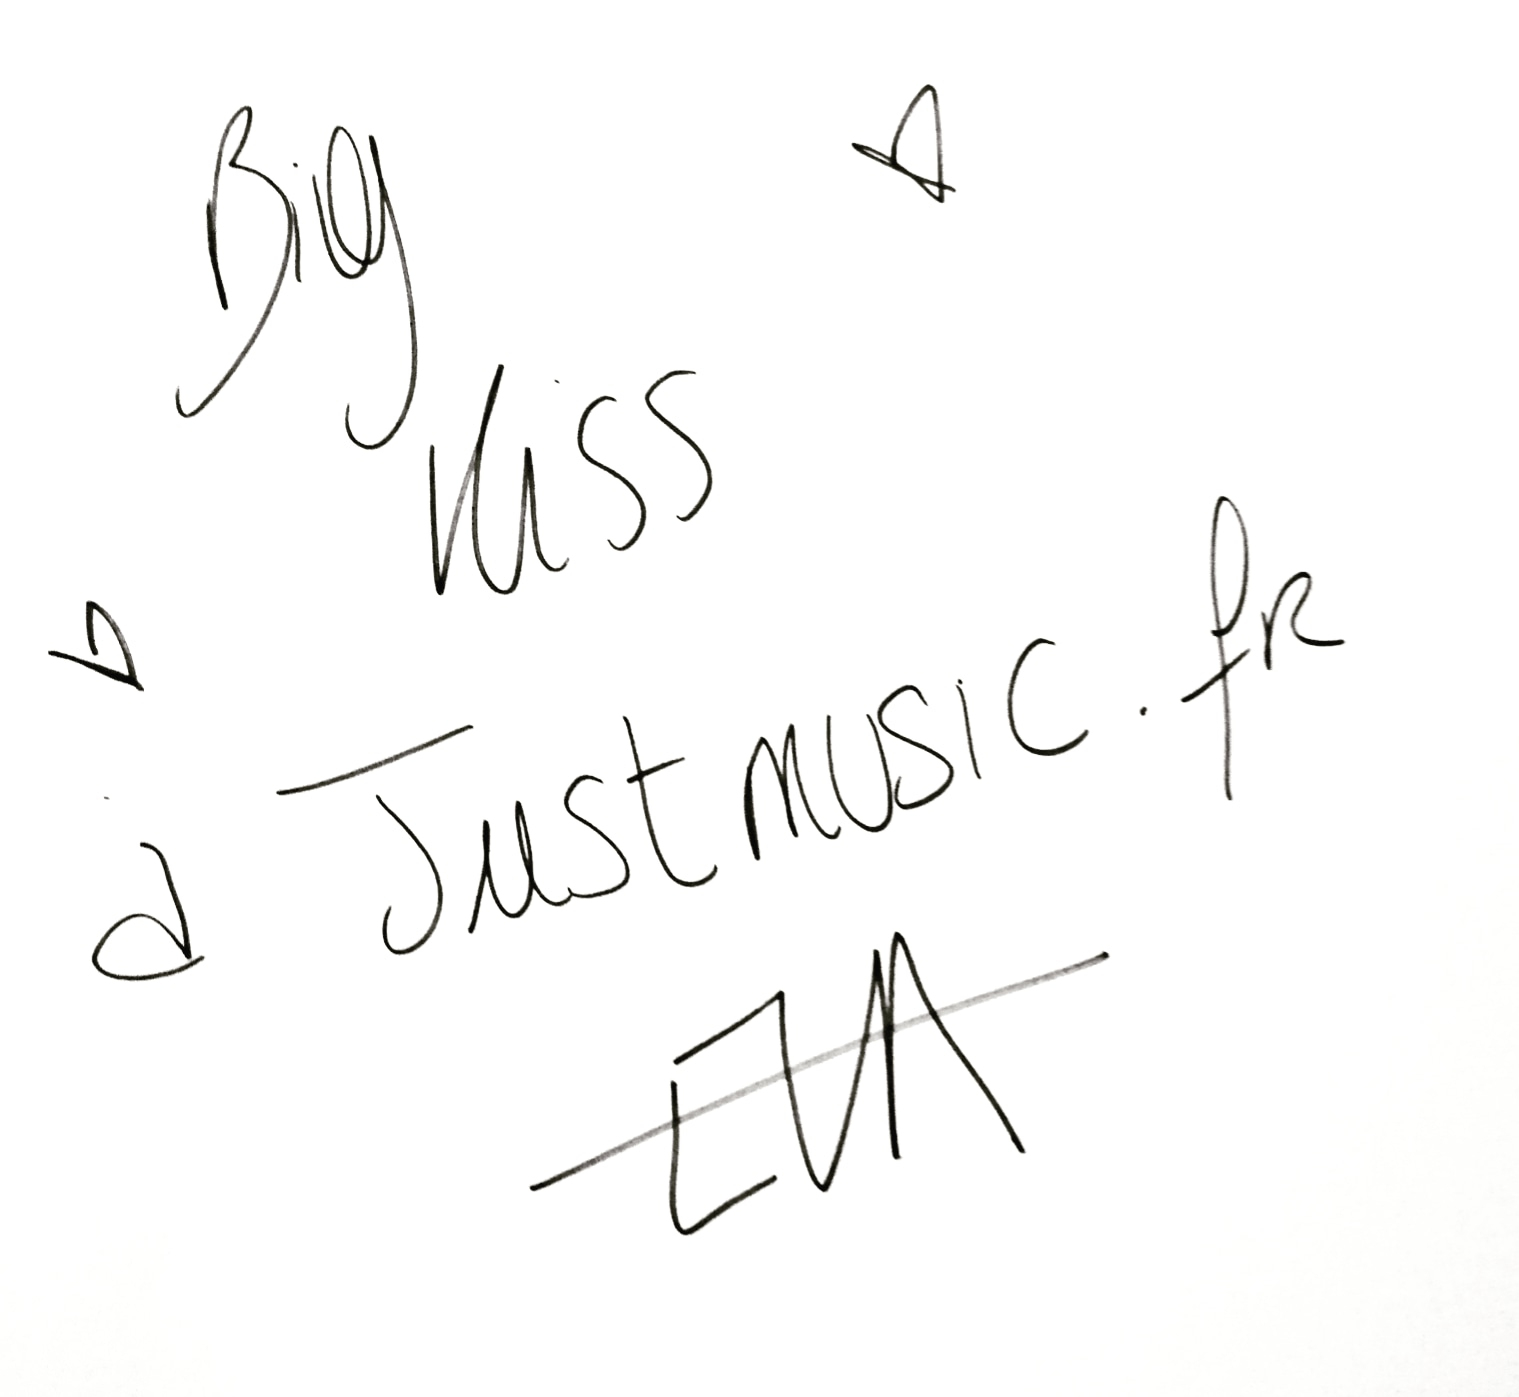 Big
Kiss
à Justmusic.fr
EVA